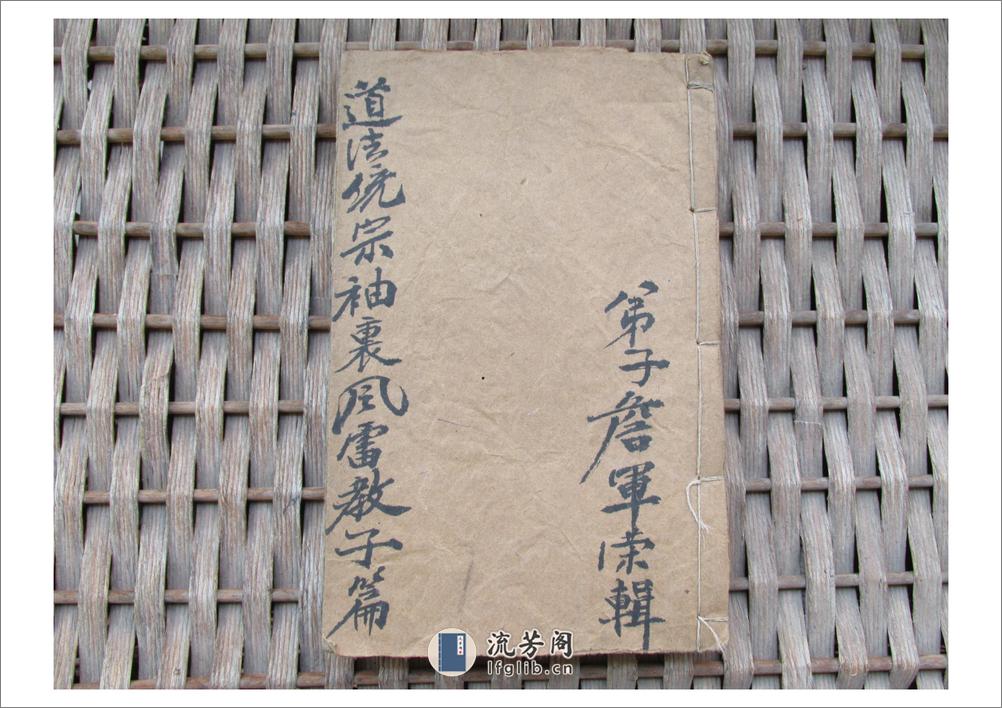 弟子詹軍榮輯
道法统宗袖裏风雷教子篇
流芳阁
lfglib.cn